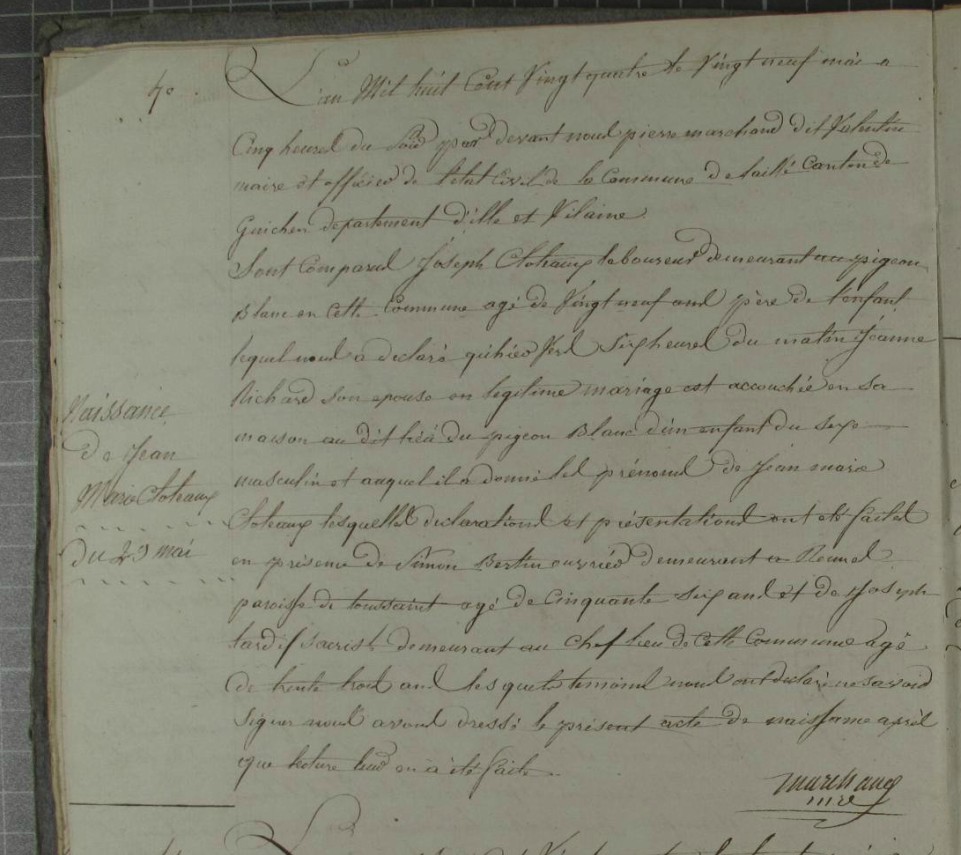 4º
L'an Mil huit Cent Vingt quatre le Vingt neuf mai a
Cinq heures du Soir par devant nous pierre marchand dit Valentin
maire et officier de l'état Civil de la Commune de Laillé Canton de
Guichen departement d'ille et Vilaine
Sont Comparus Joseph Cloteaux laboureur demeurant au pigeon
Blanc en cette Commune agé de Vingt neuf ans père de l'enfant
lequel nous a declaré qu'hier vers Six heures du matin Jeanne
Richard Son epouse en legitime mariage est accouchée en Sa
maison au dit lieu du pigeon Blanc d'un enfant du Sexe
masculin et auquel il a donné les prénoms de Jean marie
Cloteaux lesquelles declarations et présentations ont eté faites
en présence de Simon Bertin ouvrier demeurant a Rennes
paroisse de toussaint agé de Cinquante Six ans et de Joseph
tardif sacriste demeurant au Chef lieu de Cette Commune agé
de trente trois ans lesquels temoins nous ont declaré ne savoir
Signer nous avons dressé le présent acte de naissance après
que lecture leur en a été faite
marchand
mre
Naissance
de Jean
Marie Cloteaux
du 29 mai